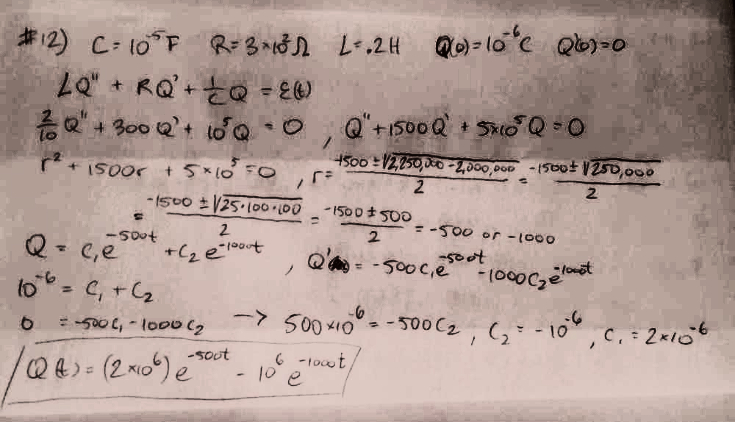 #12) C = 10⁻⁵F R = 3×10²Ω L = .2H Q(0) = 10⁻⁶C Q'(0) = 0
LQ" + RQ' + 1/C Q = ε(t)
2/10 Q" + 300Q' + 10⁵Q = 0 , Q" + 1500Q' + 5×10⁵Q = 0
r² + 1500r + 5×10⁵ = 0 , r = (-1500 ± √(2,250,000 - 2,000,000))/2 = (-1500 ± √250,000)/2
= (-1500 ± √(25·100·100))/2 = (-1500 ± 500)/2 = -500 or -1000
Q = c₁e^(-500t) + c₂e^(-1000t) , Q' = -500c₁e^(-500t) - 1000c₂e^(-1000t)
10⁻⁶ = c₁ + c₂
0 = -500c₁ - 1000c₂ → 500×10⁻⁶ = -500c₂ , c₂ = -10⁻⁶ , c₁ = 2×10⁻⁶
Q(t) = (2×10⁻⁶)e^(-500t) - 10⁻⁶e^(-1000t)